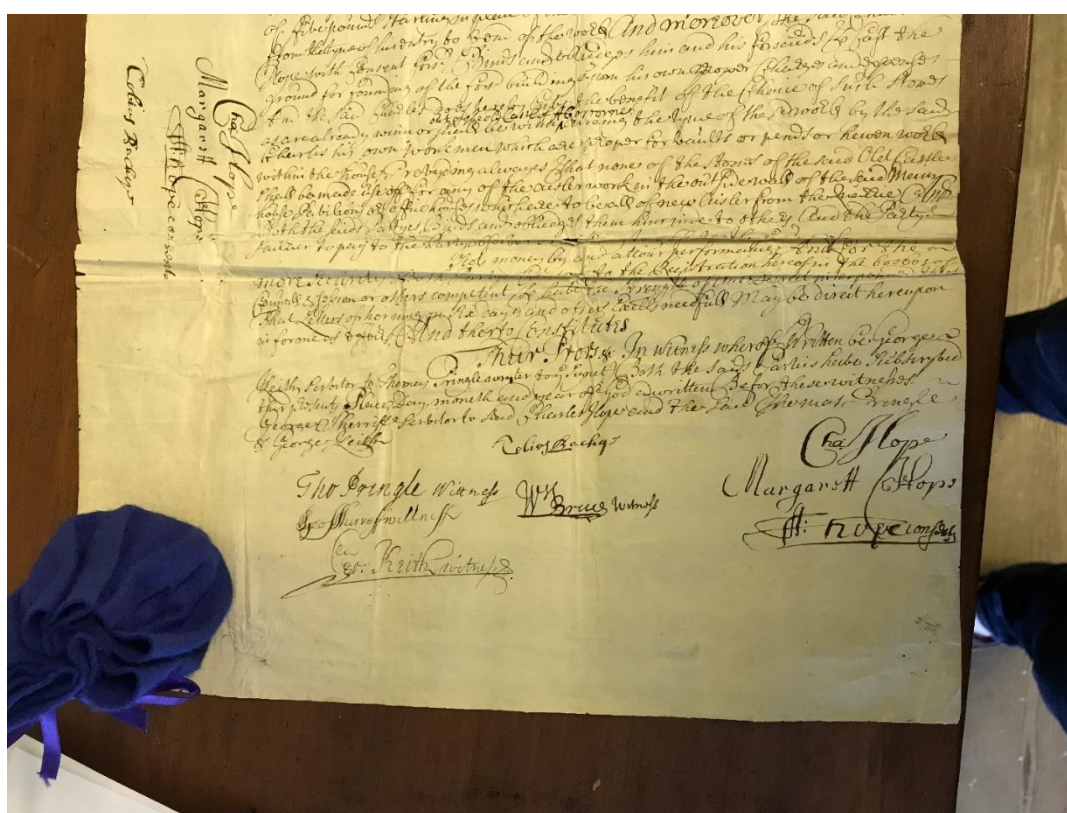 of five pound starling in plenti
from the tyme of his entry to him of the work And moreover, the said
Hope with consent forsd Binds and oblidges him and his forsaids To Cast the
ground for founding of the forsd building upon his own proper Chairges and expenses
And the said Charles doth hereby the benefit of the Choice of such stones
out of the old Castle of Abercorne
as are already winn or shall be with dureing the tyme of the sd work by the said
Charles his own workmen which are proper for vaults or pends or hewen work
within the house Provyding always That none of the stones of the said Old Castle
shall be made use off for any of the aisler work in the outsidewall of the said Mainn
house, Pavilions or office houses which are to be all of new Aisler from the
Both the saids Partyes binds and oblidges them hinc inde to others And the Party
failzier to pay to the party
money by and attour performance And for the
more security to the Registration hereof in the books of
Councill & Session or others competent
That Letters of horning on six dayes and other Execlls needfull May be direct hereupon
in forme as effeirs And therto Constitutes
Their Prors &c In witness wherof Written be George
Keith servitor to Thomas Pringle wryter to ye signet Both the saids Parties have Subscrybed
thir presents Place, Day, moneth and year of God abowritten Befor these witnesses
George servitor to the said Charles Hope and the said Thomas Pringle
& George Keith
Tobias Bachop
Cha: Hope
Tho Pringle Wittness
Wm Bruce Witness
Margarett Hope
Geo wittness
H: hope consents
Geo: Keith witness
Cha: Hope
Margarett Hope
H: hope consents
Tobias Bachop